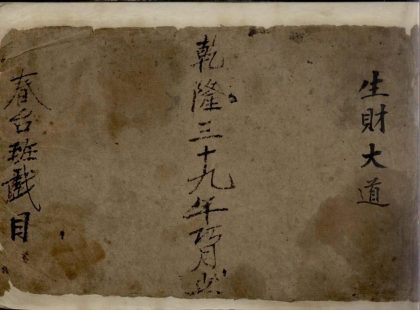 生財大道
乾隆三十九年巧月
春台班戲目